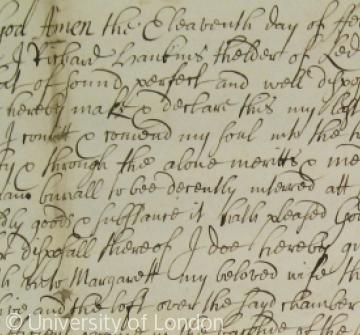 God Amen the Eleaventh day of
I Richard Hankins thelder of
of sound perfect and well
hereby make & declare this my last
I comitt & comend my soul into the
& through the alone meritts &
buriall to bee decently interred att
goods & substance it hath pleased God
disposall thereof I doe hereby
unto Margarett my beloved wife
and the loft over the sayd chamber
of the
© University of London